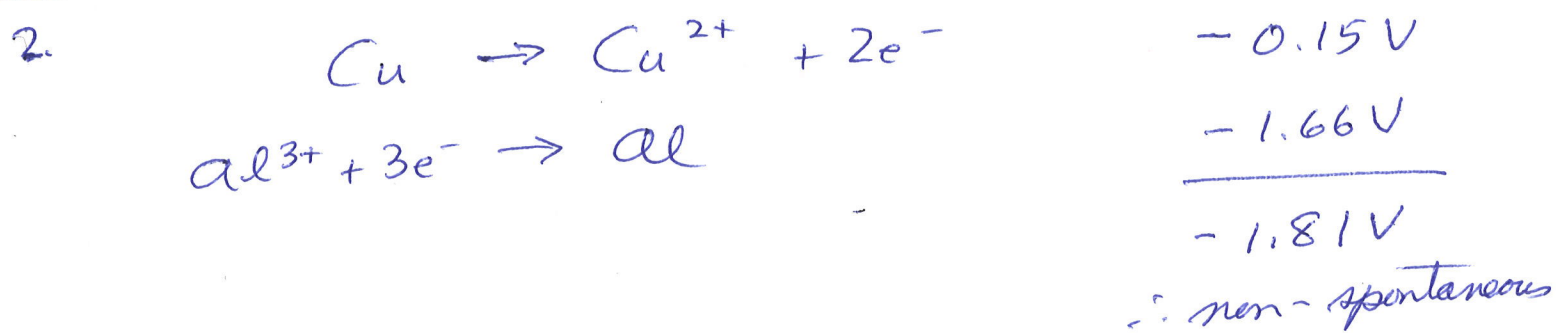 2. Cu → Cu²⁺ + 2e⁻ - 0.15 V
al³⁺ + 3e⁻ → al - 1.66 V
- 1.81 V
∴ non-spontaneous